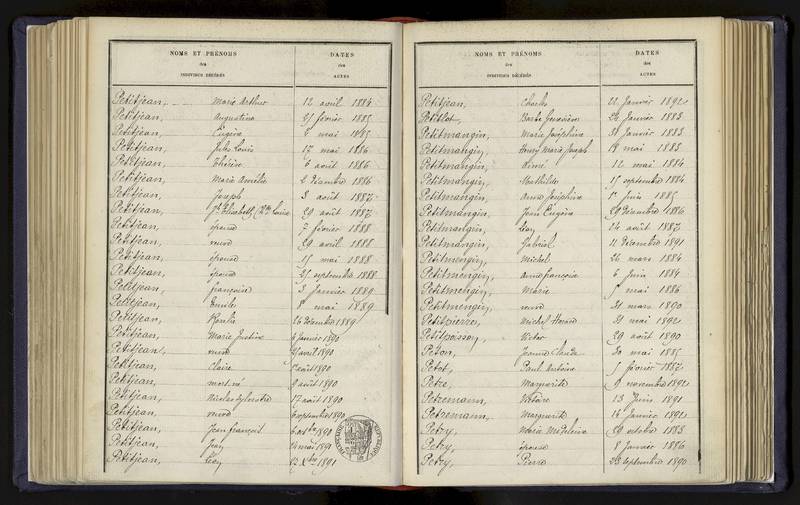 NOMS ET PRÉNOMS
des
INDIVIDUS DÉCÉDÉS
DATES
des
ACTES
Petitjean, Marie Arthur 12 avril 1884
Petitjean, Augustine 21 février 1885
Petitjean, Eugène 8 mai 1885
Petitjean, Jules Louis 17 mai 1886
Petitjean, Thérèse 6 août 1886
Petitjean, Marie Amélie 2 décembre 1886
Petitjean, Joseph 3 août 1887
Petitjean, Elisabeth 29 août 1887
Petitjean, épouse 7 février 1888
Petitjean, veuve 29 avril 1888
Petitjean, épouse 15 mai 1888
Petitjean, épouse 25 septembre 1888
Petitjean, françoise 3 Janvier 1889
Petitjean, Emile 8 mai 1889
Petitjean, Rosalie 26 décembre 1889
Petitjean, Marie Justine 6 Janvier 1890
Petitjean, veuve avril 1890
Petitjean, Claire août 1890
Petitjean, mort-né 8 août 1890
Petitjean, Nicolas Sylvestre 17 août 1890
Petitjean, veuve 6 septembre 1890
Petitjean, Jean françois 6 8bre 1890
Petitjean, mai 1891
Petitjean, Léon Xbre 1891
NOMS ET PRÉNOMS
des
INDIVIDUS DÉCÉDÉS
DATES
des
ACTES
Petitjean, Charles 22 Janvier 1892
Petitlot, Barbe Geneviève 24 Janvier 1883
Petitmangin, Marie Joséphine 31 Janvier 1883
Petitmangin, Henry Marie Joseph 18 mai 1883
Petitmangin, Aimé 12 mai 1884
Petitmangin, Mathilde 15 septembre 1884
Petitmangin, Anne Joséphine 1er Juin 1885
Petitmangin, Jean Eugène 29 décembre 1886
Petitmangin, Léon 24 août 1887
Petitmangin, Gabriel 11 décembre 1891
Petitmengin, Michel 26 mars 1884
Petitmengin, Anne françoise 6 Juin 1884
Petitmengin, Marie mai 1886
Petitmengin, veuve 31 mars 1890
Petitpierre, Michel 21 mai 1892
Petitpoisson, Victor 29 août 1890
Peton, Jeanne Claude 30 mai 1885
Petot, Paul Antoine 5 février 1887
Petre, Marguerite 9 novembre 1892
Petremann, Victoire 13 Juin 1891
Petremann, Marguerite 14 Janvier 1892
Petry, Marie Madeleine 29 octobre 1883
Petry, épouse 8 Janvier 1886
Petry, Pierre 28 septembre 1890